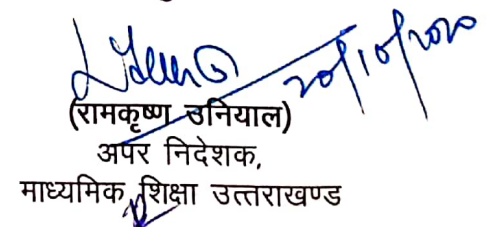 20/10/2020
(रामकृष्ण उनियाल)
अपर निदेशक,
माध्यमिक शिक्षा उत्तराखण्ड